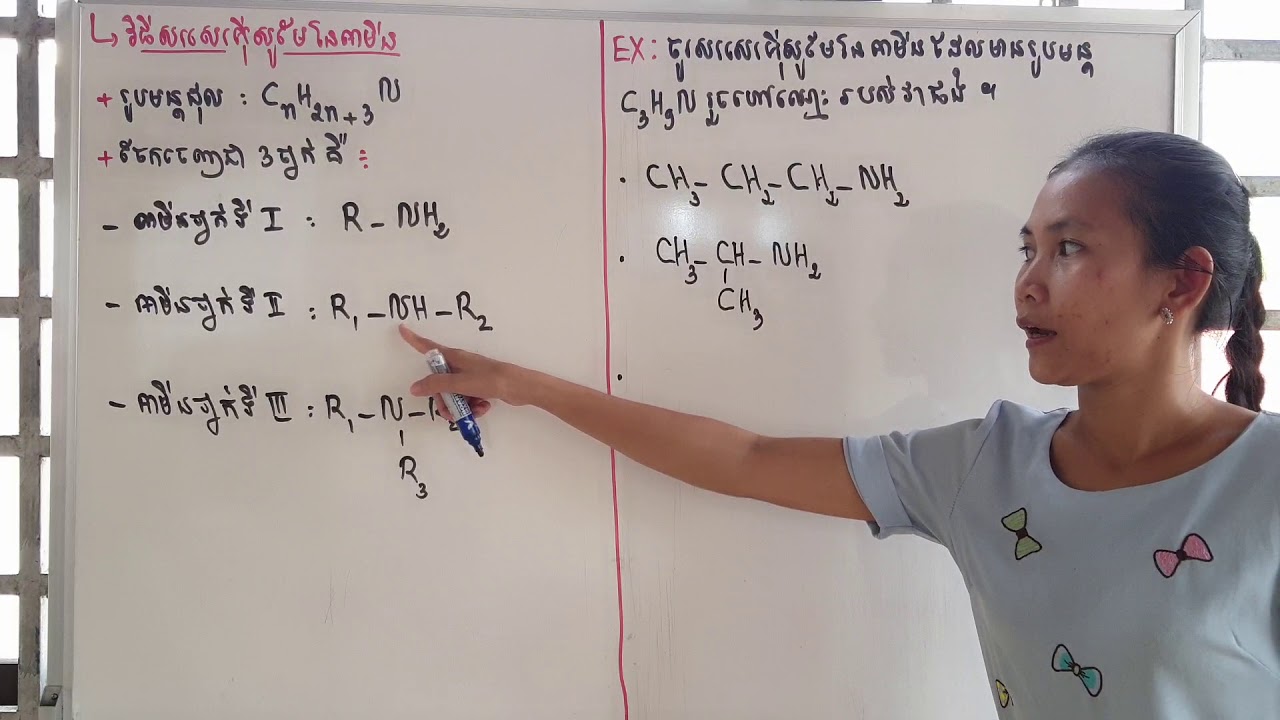 ↳ វិធីសរសេរអ៊ីសូមែនអាមីន
+ រូបមន្តដុល : CₙH₂ₙ₊₃N
+ ចែកចេញជា 3 ថ្នាក់គឺ :
- អាមីនថ្នាក់ទី I : R - NH₂
- អាមីនថ្នាក់ទី II : R₁ - NH - R₂
- អាមីនថ្នាក់ទី III : R₁ - N - R₂
R₃
EX : ចូរសរសេរអ៊ីសូមែនអាមីនដែលមានរូបមន្ត
C₃H₉N រួចហៅឈ្មោះ របស់វាផង ។
. CH₃ - CH₂ - CH₂ - NH₂
. CH₃ - CH - NH₂
CH₃
.